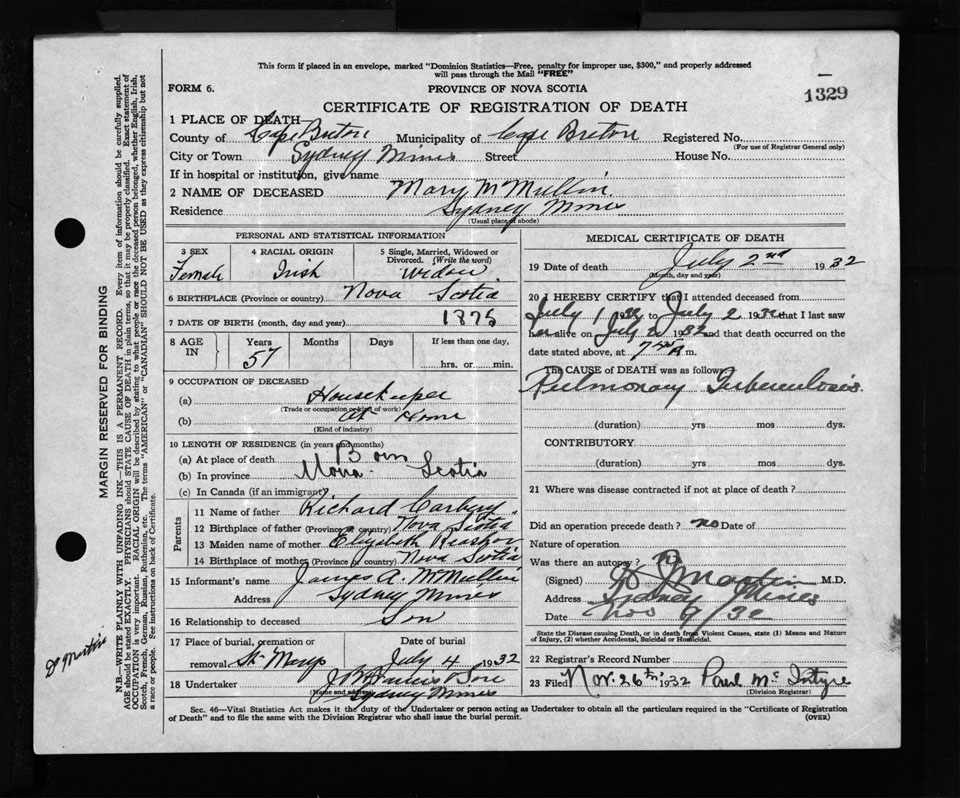 This form if placed in an envelope, marked "Dominion Statistics—Free, penalty for improper use, $300," and properly addressed
will pass through the Mail "FREE"
FORM 6. PROVINCE OF NOVA SCOTIA
1329
CERTIFICATE OF REGISTRATION OF DEATH
1 PLACE OF DEATH—
County of Cape Breton Municipality of Cape Breton Registered No.
(For use of Registrar General only)
City or Town Sydney Mines Street House No.
If in hospital or institution, give name
2 NAME OF DECEASED Mary McMullin
Residence Sydney Mines
(Usual place of abode)
PERSONAL AND STATISTICAL INFORMATION
3 SEX 4 RACIAL ORIGIN 5 Single, Married, Widowed or
Divorced. (Write the word)
Female Irish Widow
6 BIRTHPLACE (Province or country) Nova Scotia
7 DATE OF BIRTH (month, day and year) 1875
8 AGE IN Years Months Days If less than one day,
57 hrs. or min.
9 OCCUPATION OF DECEASED
(a) Housekeeper
(Trade or occupation or kind of work)
(b) At Home
(Kind of industry)
10 LENGTH OF RESIDENCE (in years and months)
(a) At place of death Born
(b) In province Nova Scotia
(c) In Canada (if an immigrant)
Parents
11 Name of father Richard Carbery
12 Birthplace of father (Province or country) Nova Scotia
13 Maiden name of mother Elizabeth
14 Birthplace of mother (Province or country) Nova Scotia
15 Informant's name James A. McMullin
Address Sydney Mines
16 Relationship to deceased Son
17 Place of burial, cremation or Date of burial
removal St. Marys July 4 1932
18 Undertaker Son
(Name and address) Sydney Mines
MEDICAL CERTIFICATE OF DEATH
19 Date of death July 2nd 1932
(Month, day and year)
20 I HEREBY CERTIFY that I attended deceased from
July 1 1932 to July 2 1932 that I last saw
her alive on July 2 1932 and that death occurred on the
date stated above, at 7 A m.
The CAUSE of DEATH was as follows:
Pulmonary Tuberculosis
(duration) yrs mos dys.
CONTRIBUTORY
(duration) yrs mos dys.
21 Where was disease contracted if not at place of death?
Did an operation precede death? no Date of
Nature of operation
Was there an autopsy?
(Signed) Martin M.D.
Address Sydney Mines
Date Nov 9/32
State the Disease causing Death, or in death from Violent Causes, state (1) Means and Nature
of Injury, (2) whether Accidental, Suicidal or Homicidal.
22 Registrar's Record Number
23 Filed Nov. 26th 1932 Paul McIntyre
(Division Registrar)
Sec. 46—Vital Statistics Act makes it the duty of the Undertaker or person acting as Undertaker to obtain all the particulars required in the "Certificate of Registration
of Death" and to file the same with the Division Registrar who shall issue the burial permit. (OVER)
MARGIN RESERVED FOR BINDING
N.B.—WRITE PLAINLY WITH UNFADING INK—THIS IS A PERMANENT RECORD. Every item of information should be carefully supplied.
AGE should be stated EXACTLY. PHYSICIANS should STATE CAUSE OF DEATH in plain terms, so that it may be properly classified. Exact statement of
OCCUPATION is very important. RACIAL ORIGIN will be described by stating to what people or race the deceased person belonged, whether English, Irish,
Scotch, French, German, Russian, Ruthenian, etc. The terms "AMERICAN" or "CANADIAN" SHOULD NOT BE USED as they express citizenship but not
a race or people. See instructions on back of Certificate.
Dr Martin